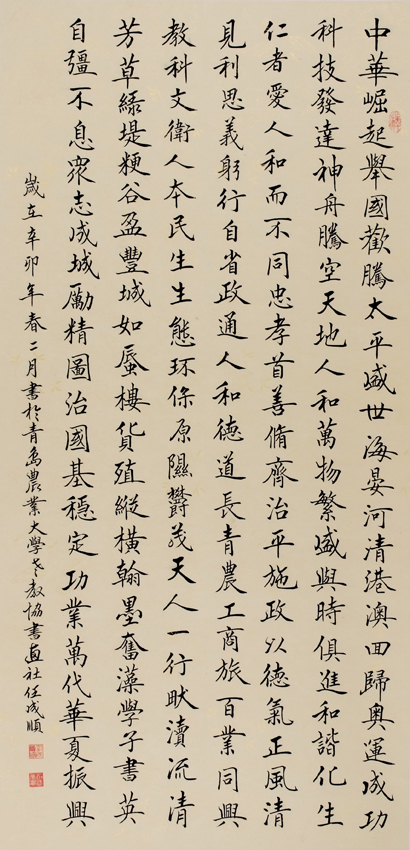 中華崛起舉國歡騰太平盛世海晏河清港澳回歸奧運成功
科技發達神舟騰空天地人和萬物繁盛與時俱進和諧化生
仁者愛人和而不同忠孝首善脩齊治平施政以德氣正風清
見利思義躬行自省政通人和德道長青農工商旅百業同興
教科文衛人本民生生態环保原隰欝茂天人一行畎瀆流清
芳草綠堤粳谷盈豐城如蜃樓貨殖縱橫翰墨奮藻學子書英
自彊不息眾志成城勵精圖治國基穩定功業萬代華夏振興
歲在辛卯年春二月書於青島農業大學老教協書畫社任成順